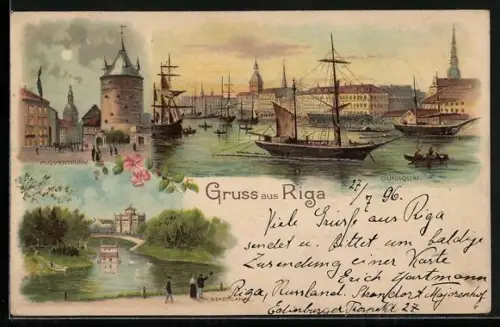 PULVERTHURM
DÜNAQUAI
Gruss aus Riga
27/7 96.
Viele Grüsse aus Riga
sendet u. Bittet um baldige
Zusendung einer Karte
Erich Hartmann
Riga, Russland. Strandort Majorenhof
Edinburger Prospekt 27
STADTCANAL